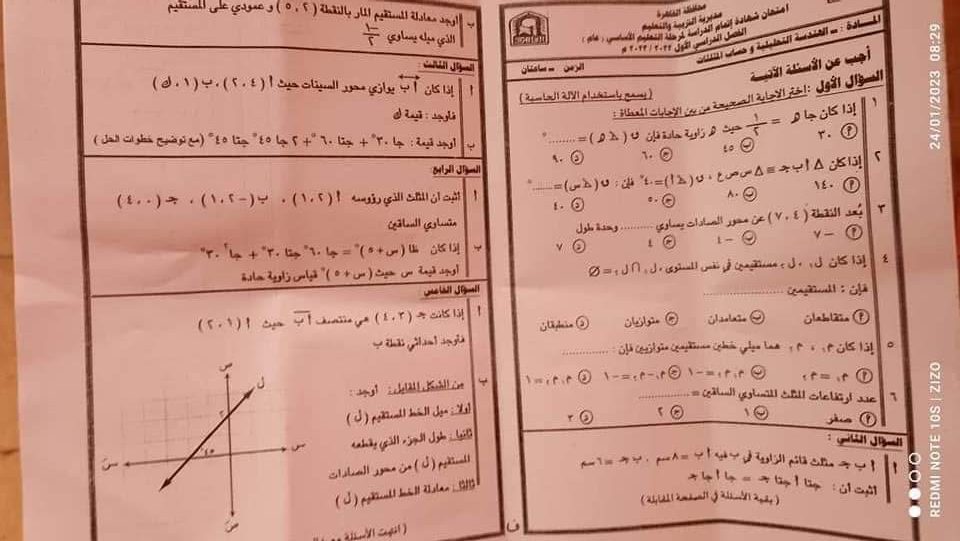 محافظة القاهرة
مديرية التربية والتعليم
امتحان شهادة إتمام الدراسة لمرحلة التعليم الأساسي : عام :
الفصل الدراسي الأول ٢٠٢٢ / ٢٠٢٣ م
المـــادة : ـ الهندسة التحليلية و حساب المثلثات
الزمن ـ ساعتان
أجب عن الأسئلة الآتيـة
( يسمح باستخدام الآلة الحاسبة )
السؤال الأول : اختر الاجابة الصحيحة من بين الإجابات المعطاة :
١ إذا كان جا هـ = ١/٢ حيث هـ زاوية حادة فإن ق ( ∠ هـ ) = ........ °
أ ٣٠ ب ٤٥ ج ٦٠ د ٩٠
٢ إذا كان △ أ ب جـ ≡ △ س ص ع ، ق ( ∠ أ ) = ٤٠° فإن : ق ( ∠ س ) = ........ °
أ ١٤٠ ب ٨٠ ج ٥٠ د ٤٠
٣ بُعد النقطة ( ٤ ، ٧ ) عن محور الصادات يساوي ........ وحدة طول
أ - ٧ ب - ٤ ج ٤ د ٧
٤ إذا كان ل١ ، ل٢ مستقيمين في نفس المستوى ، ل١ ∩ ل٢ = ∅
فإن : المستقيمين ....................
أ متقاطعان ب متعامدان ج متوازيان د منطبقان
٥ إذا كان م١ ، م٢ هما ميلي خطين مستقيمين متوازيين فإن : ..........
أ م١ = م٢ ب م١ م٢ = - ١ ج م١ - م٢ = - ١ د م١ م٢ = ١
٦ عدد ارتفاعات المثلث المتساوي الساقين = ..............
أ صفر ب ١ ج ٢ د ٣
السؤال الثاني :
أ أ ب جـ مثلث قائم الزاوية في ب فيه أ ب = ٨ سم ، ب جـ = ٦ سم
أثبت أن : جتا أ جتا جـ = جا أ جا جـ
( بقية الأسئلة في الصفحة المقابلة )
ب أوجد معادلة المستقيم المار بالنقطة ( ٢ ، ٥ ) و عمودي على المستقيم
الذي ميله يساوي ١/٢
السؤال الثالث :
أ إذا كان أ ب يوازي محور السينات حيث أ ( ٤ ، ٢ ) ، ب ( ١ ، ك )
فأوجد : قيمة ك
ب أوجد قيمة : جا ٣٠° + جتا ٦٠° + ٢ جا ٤٥° جتا ٤٥° ( مع توضيح خطوات الحل )
السؤال الرابع :
أ أثبت أن المثلث الذي رؤوسه أ ( ٢ ، ١ ) ، ب ( - ٢ ، ١ ) ، جـ ( ٠ ، ٤ )
متساوي الساقين
ب إذا كان ظا ( س + ٥ )° = جا ٦٠° جتا ٣٠° + جا٢ ٣٠°
أوجد قيمة س حيث ( س + ٥ )° قياس زاوية حادة
السؤال الخامس :
أ إذا كانت جـ ( ٣ ، ٤ ) هي منتصف أ ب حيث أ ( ١ ، ٢ )
فأوجد أحداثي نقطة ب
ب من الشكل المقابل : أوجد :
أولا : ميل الخط المستقيم ( ل )
ثانيا : طول الجزء الذي يقطعه
المستقيم ( ل ) من محور الصادات
ثالثا : معادلة الخط المستقيم ( ل )
ص
ل
٢
٤٥
س
سَ
صَ
( انتهت الأسئلة
24/01/2023 08:29
REDMI NOTE 10S | ZIZO